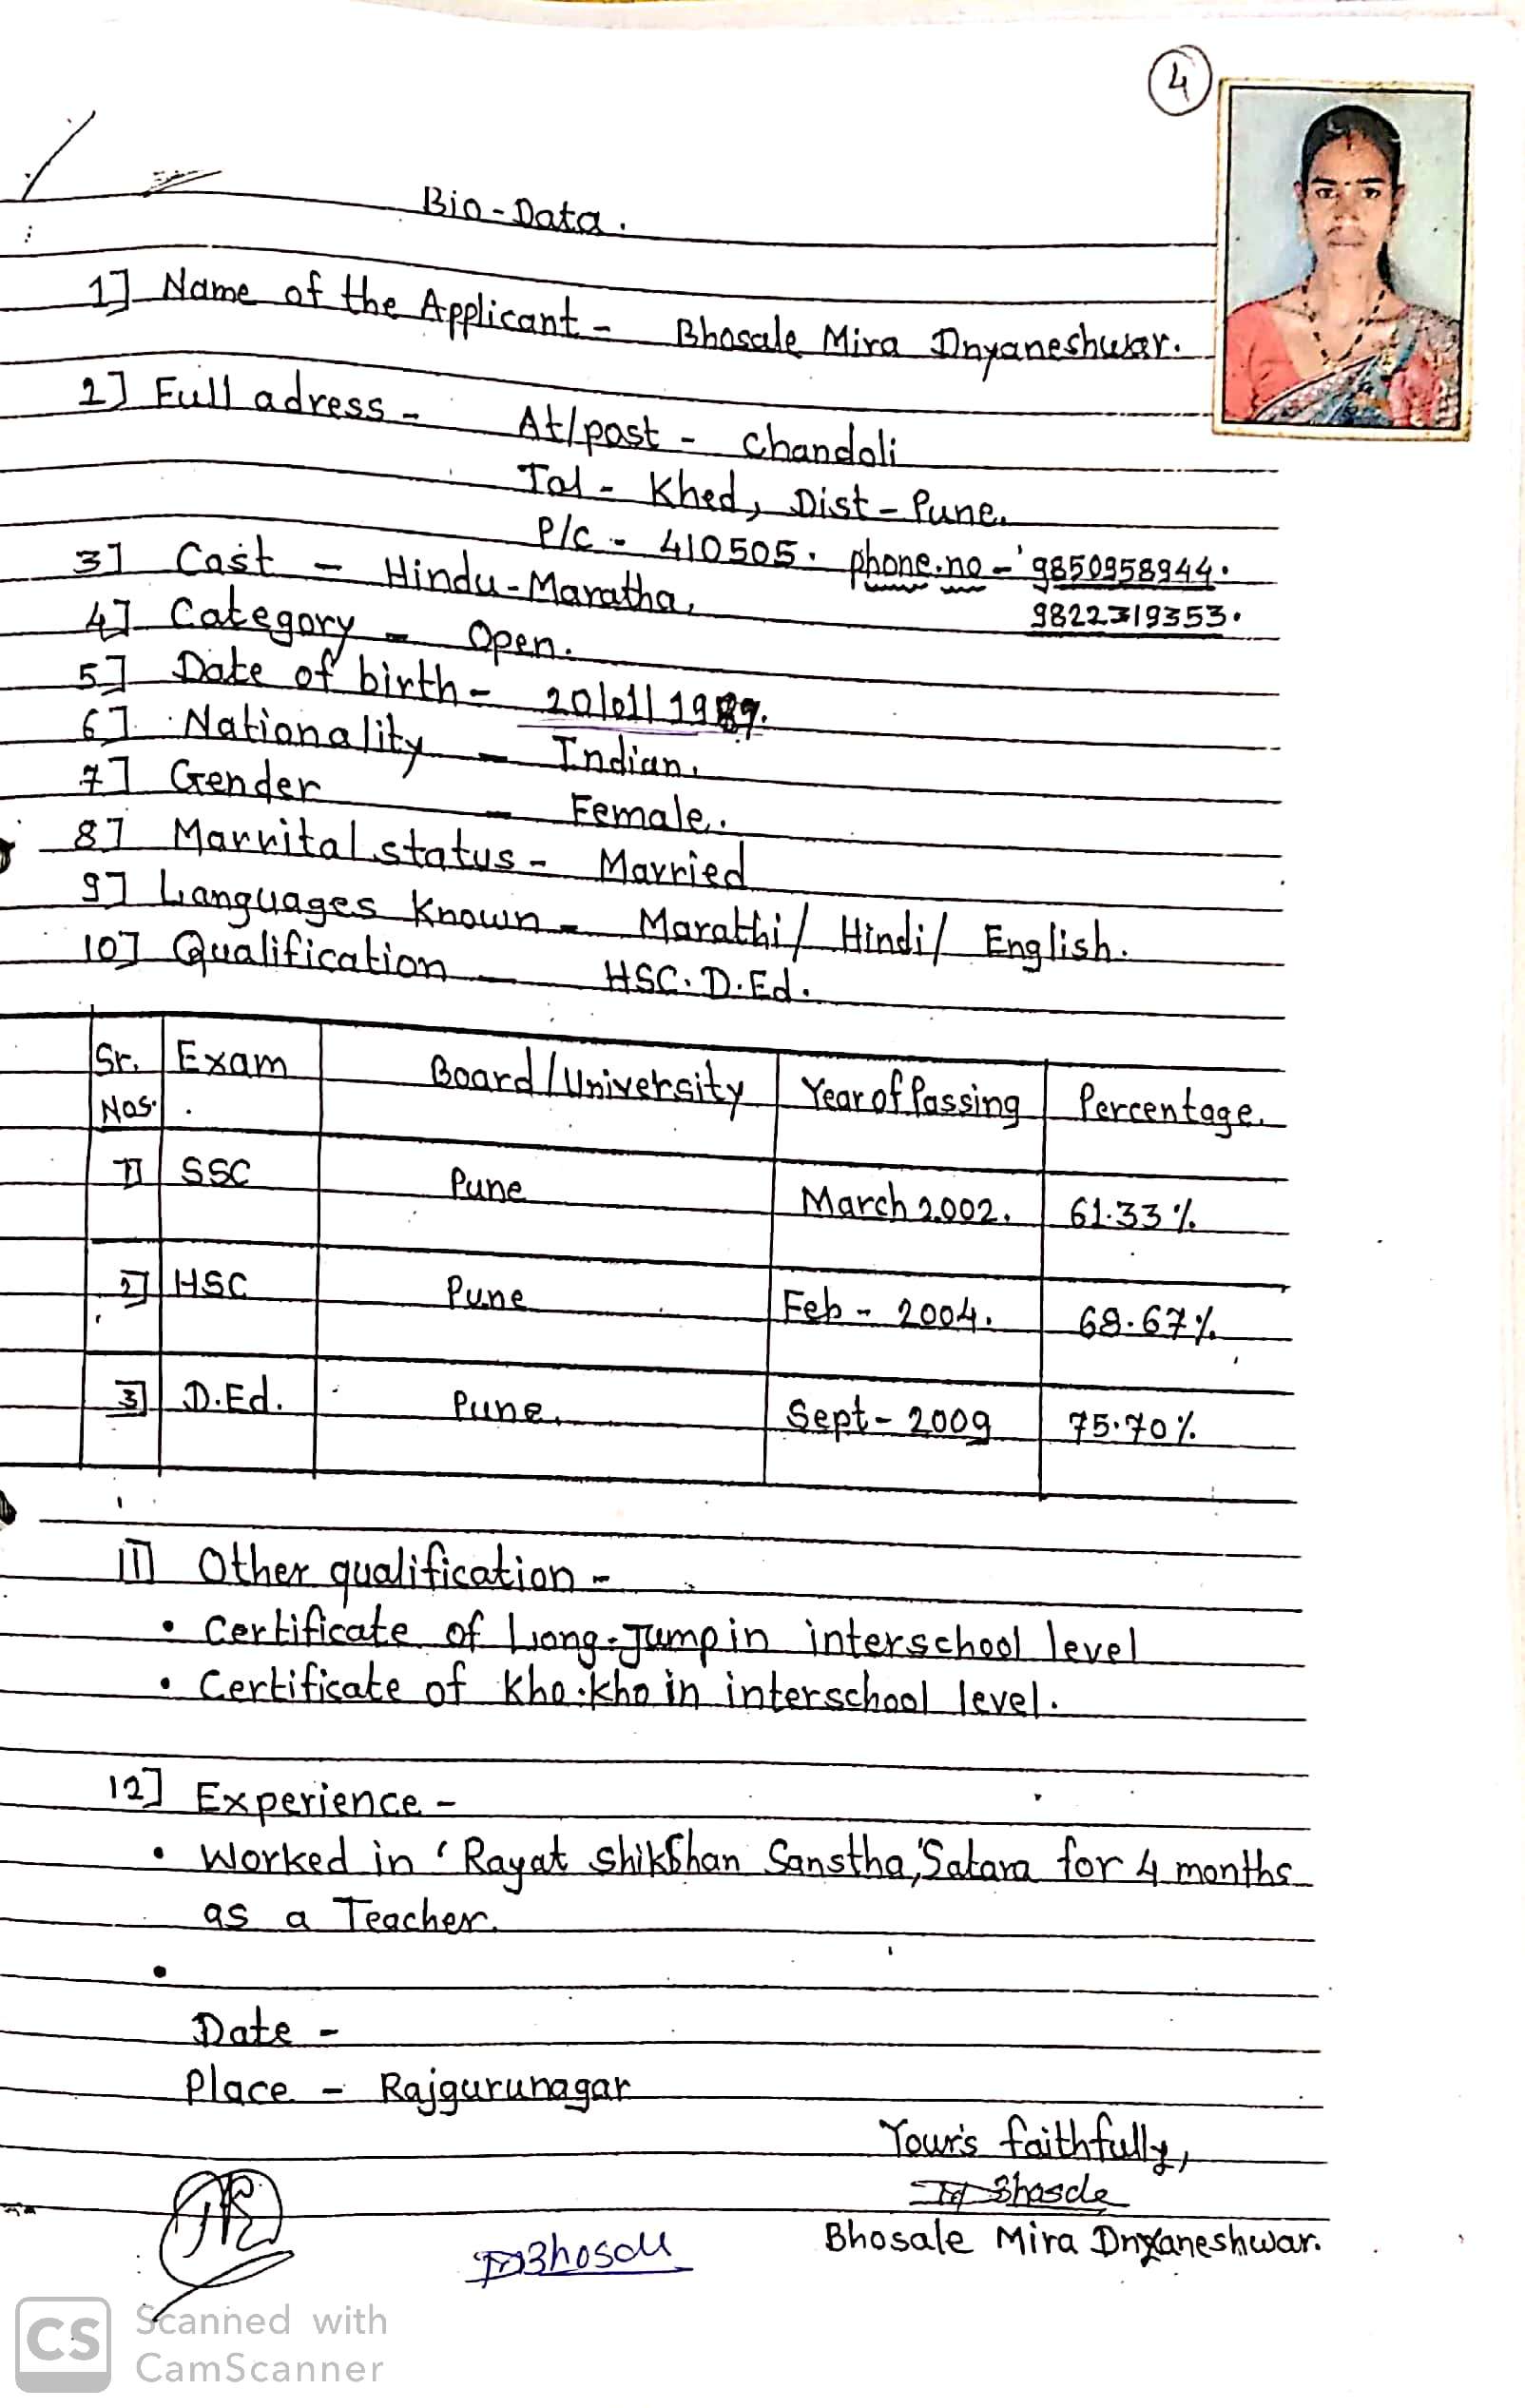 4
Bio-Data.
1] Name of the Applicant - Bhosale Mira Dnyaneshwar.
2] Full adress - At/post - chandoli
Tal - Khed, Dist - Pune.
P/c - 410505. phone.no - 9850958944.
9822319353.
3] Cast - Hindu-Maratha.
4] Category - Open.
5] Date of birth - 20/01/1989.
6] Nationality - Indian.
7] Gender - Female.
8] Marrital status - Married
9] Languages Known - Marathi/ Hindi/ English.
10] Qualification - HSC. D.Ed.
Sr. Nos. Exam Board/University Year of Passing Percentage.
1] SSC Pune March 2002. 61.33 %
2] HSC Pune Feb - 2004. 68.67 %
3] D.Ed. Pune. Sept - 2009 75.70 %
11] Other qualification -
• Certificate of Long-Jump in interschool level
• Certificate of Kho.kho in interschool level.
12] Experience -
• Worked in 'Rayat shikshan Sanstha,'Satara for 4 months
as a Teacher.
•
Date -
Place - Rajgurunagar
Your's faithfully,
Bhosale
Bhosale Mira Dnyaneshwar.
Bhosale
CS Scanned with
CamScanner